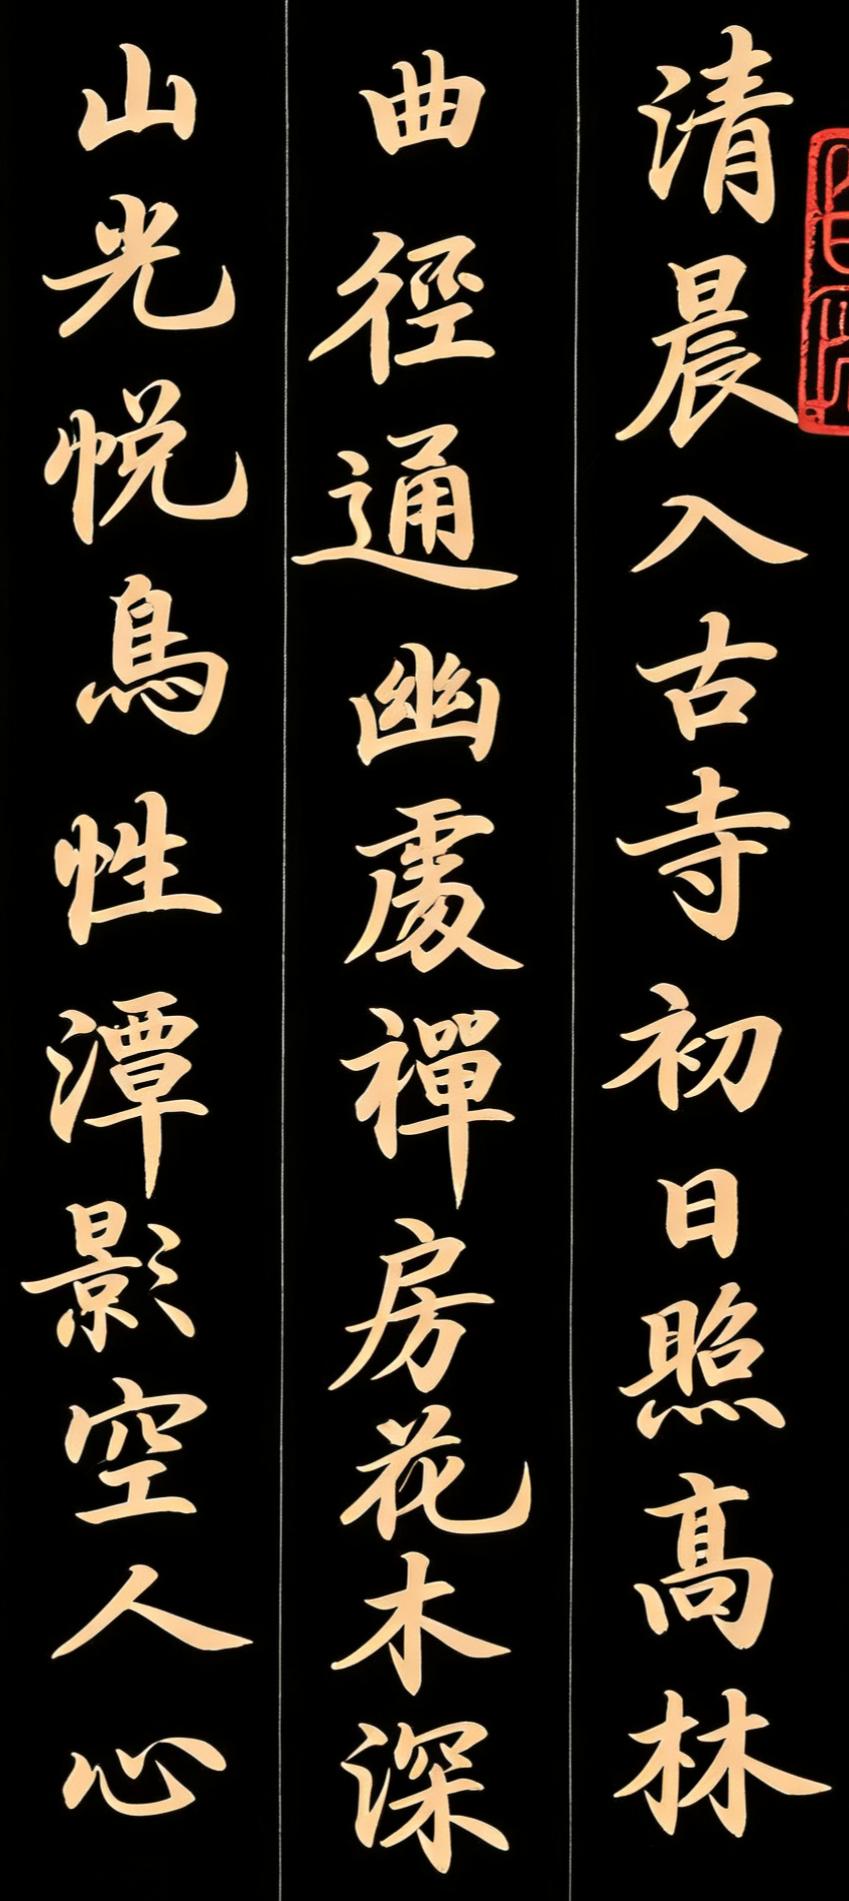 清晨入古寺初日照高林
曲徑通幽處禪房花木深
山光悦鳥性潭影空人心